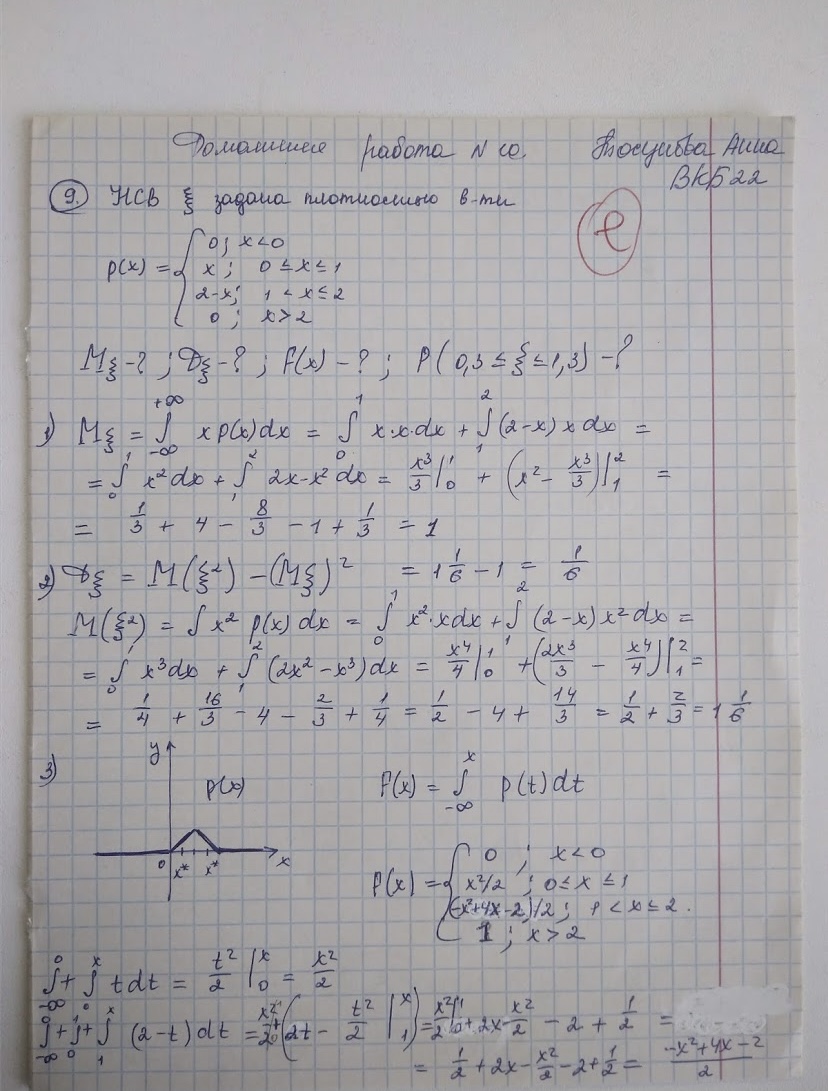 Домашняя работа N 10. Тосунова Анна
ВКБ22
9. НСВ ξ задана плотностью в-ти
p(x) = { 0; x<0
x; 0 ≤ x ≤ 1
2-x; 1 < x ≤ 2
0; x > 2
Mξ - ? ; Dξ - ? ; F(x) - ? ; P( 0,3 ≤ ξ ≤ 1,3) - ?
1) Mξ = ∫_{-∞}^{+∞} x p(x) dx = ∫_0^1 x·x·dx + ∫_1^2 (2-x) x dx =
= ∫_0^1 x² dx + ∫_1^2 2x-x² dx = x³/3 |_0^1 + (x² - x³/3)|_1^2 =
= 1/3 + 4 - 8/3 - 1 + 1/3 = 1
2) Dξ = M(ξ²) - (Mξ)² = 1 1/6 - 1 = 1/6
M(ξ²) = ∫ x² p(x) dx = ∫_0^1 x²·x dx + ∫_1^2 (2-x) x² dx =
= ∫_0^1 x³ dx + ∫_1^2 (2x² - x³) dx = x⁴/4 |_0^1 + (2x³/3 - x⁴/4)|_1^2 =
= 1/4 + 16/3 - 4 - 2/3 + 1/4 = 1/2 - 4 + 14/3 = 1/2 + 2/3 = 1 1/6
3) y p(x) 0 x* x* x
F(x) = ∫_{-∞}^x p(t) dt
P(x) = { 0 ; x < 0
x²/2 ; 0 ≤ x ≤ 1
(-x²+4x-2)/2 ; 1 < x ≤ 2.
1 ; x > 2
∫_{-∞}^0 + ∫_0^x t dt = t²/2 |_0^x = x²/2
∫_{-∞}^0 + ∫_0^1 + ∫_1^x (2-t) dt = x²/2 |_0^1 + (2t - t²/2 |_1^x) = x²/2 |_0^1 + 2x - x²/2 - 2 + 1/2 =
= 1/2 + 2x - x²/2 - 2 + 1/2 = (-x² + 4x - 2)/2